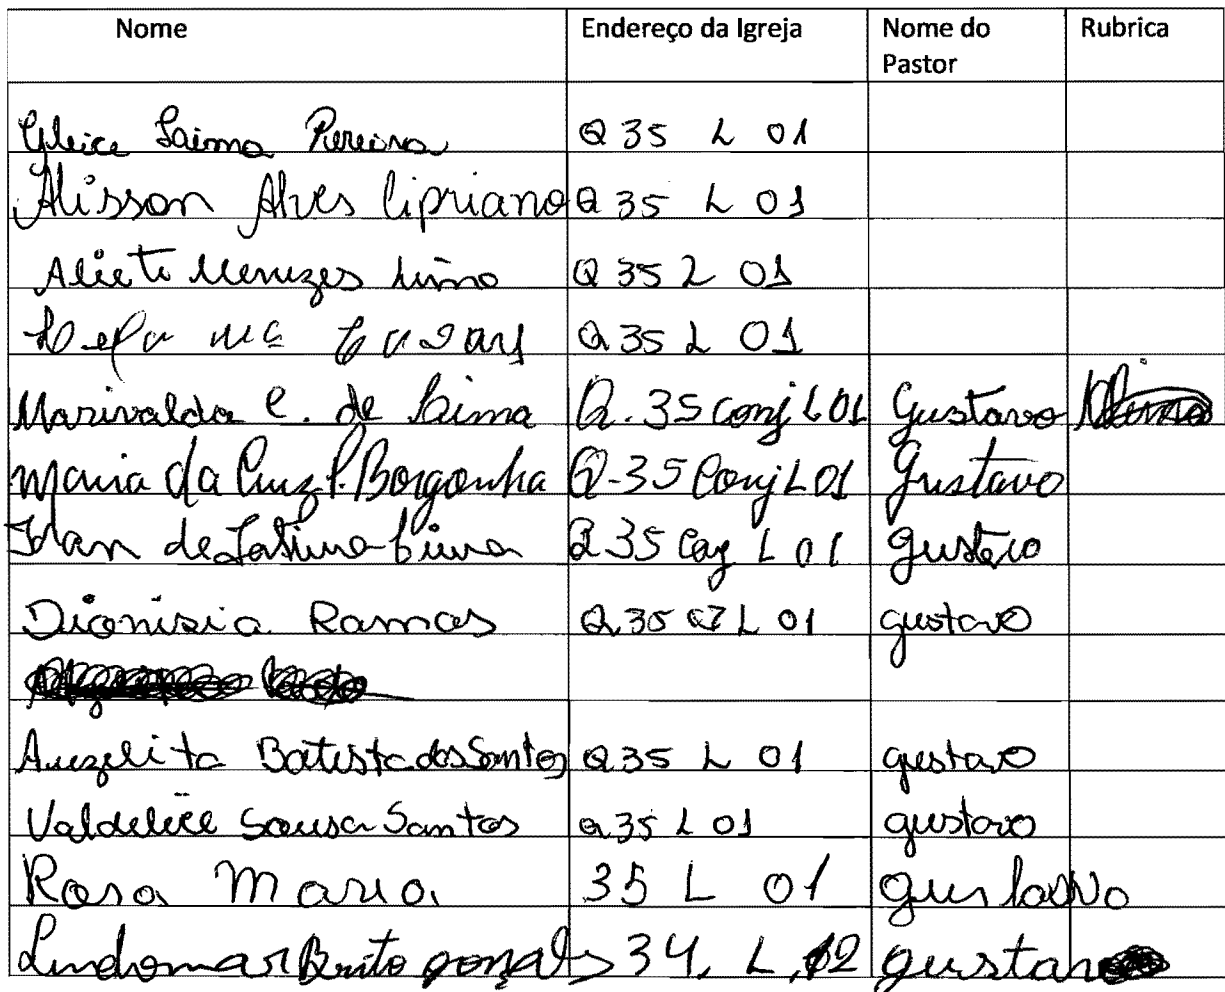 Nome Endereço da Igreja Nome do Pastor Rubrica
Gleice Laima Pereira Q 35 L 01
Alisson Alves Cipriano Q 35 L 01
Menezes Q 35 L 01
Q 35 L 01
Marivalda C. de Lima Q. 35 conj L 01 Gustavo
Maria da Cruz P. Borgonha Q-35 Conj L 01 Gustavo
de Fatima Q 35 L 01
Dionisia Ramos Q 35 L 01 gustavo
Auzelita Batista dos Santos Q 35 L 01 gustavo
Valdelice Sousa Santos Q 35 L 01 gustavo
Rosa Maria 35 L 01 gustavo
Lindomar Brito 34, L, 12